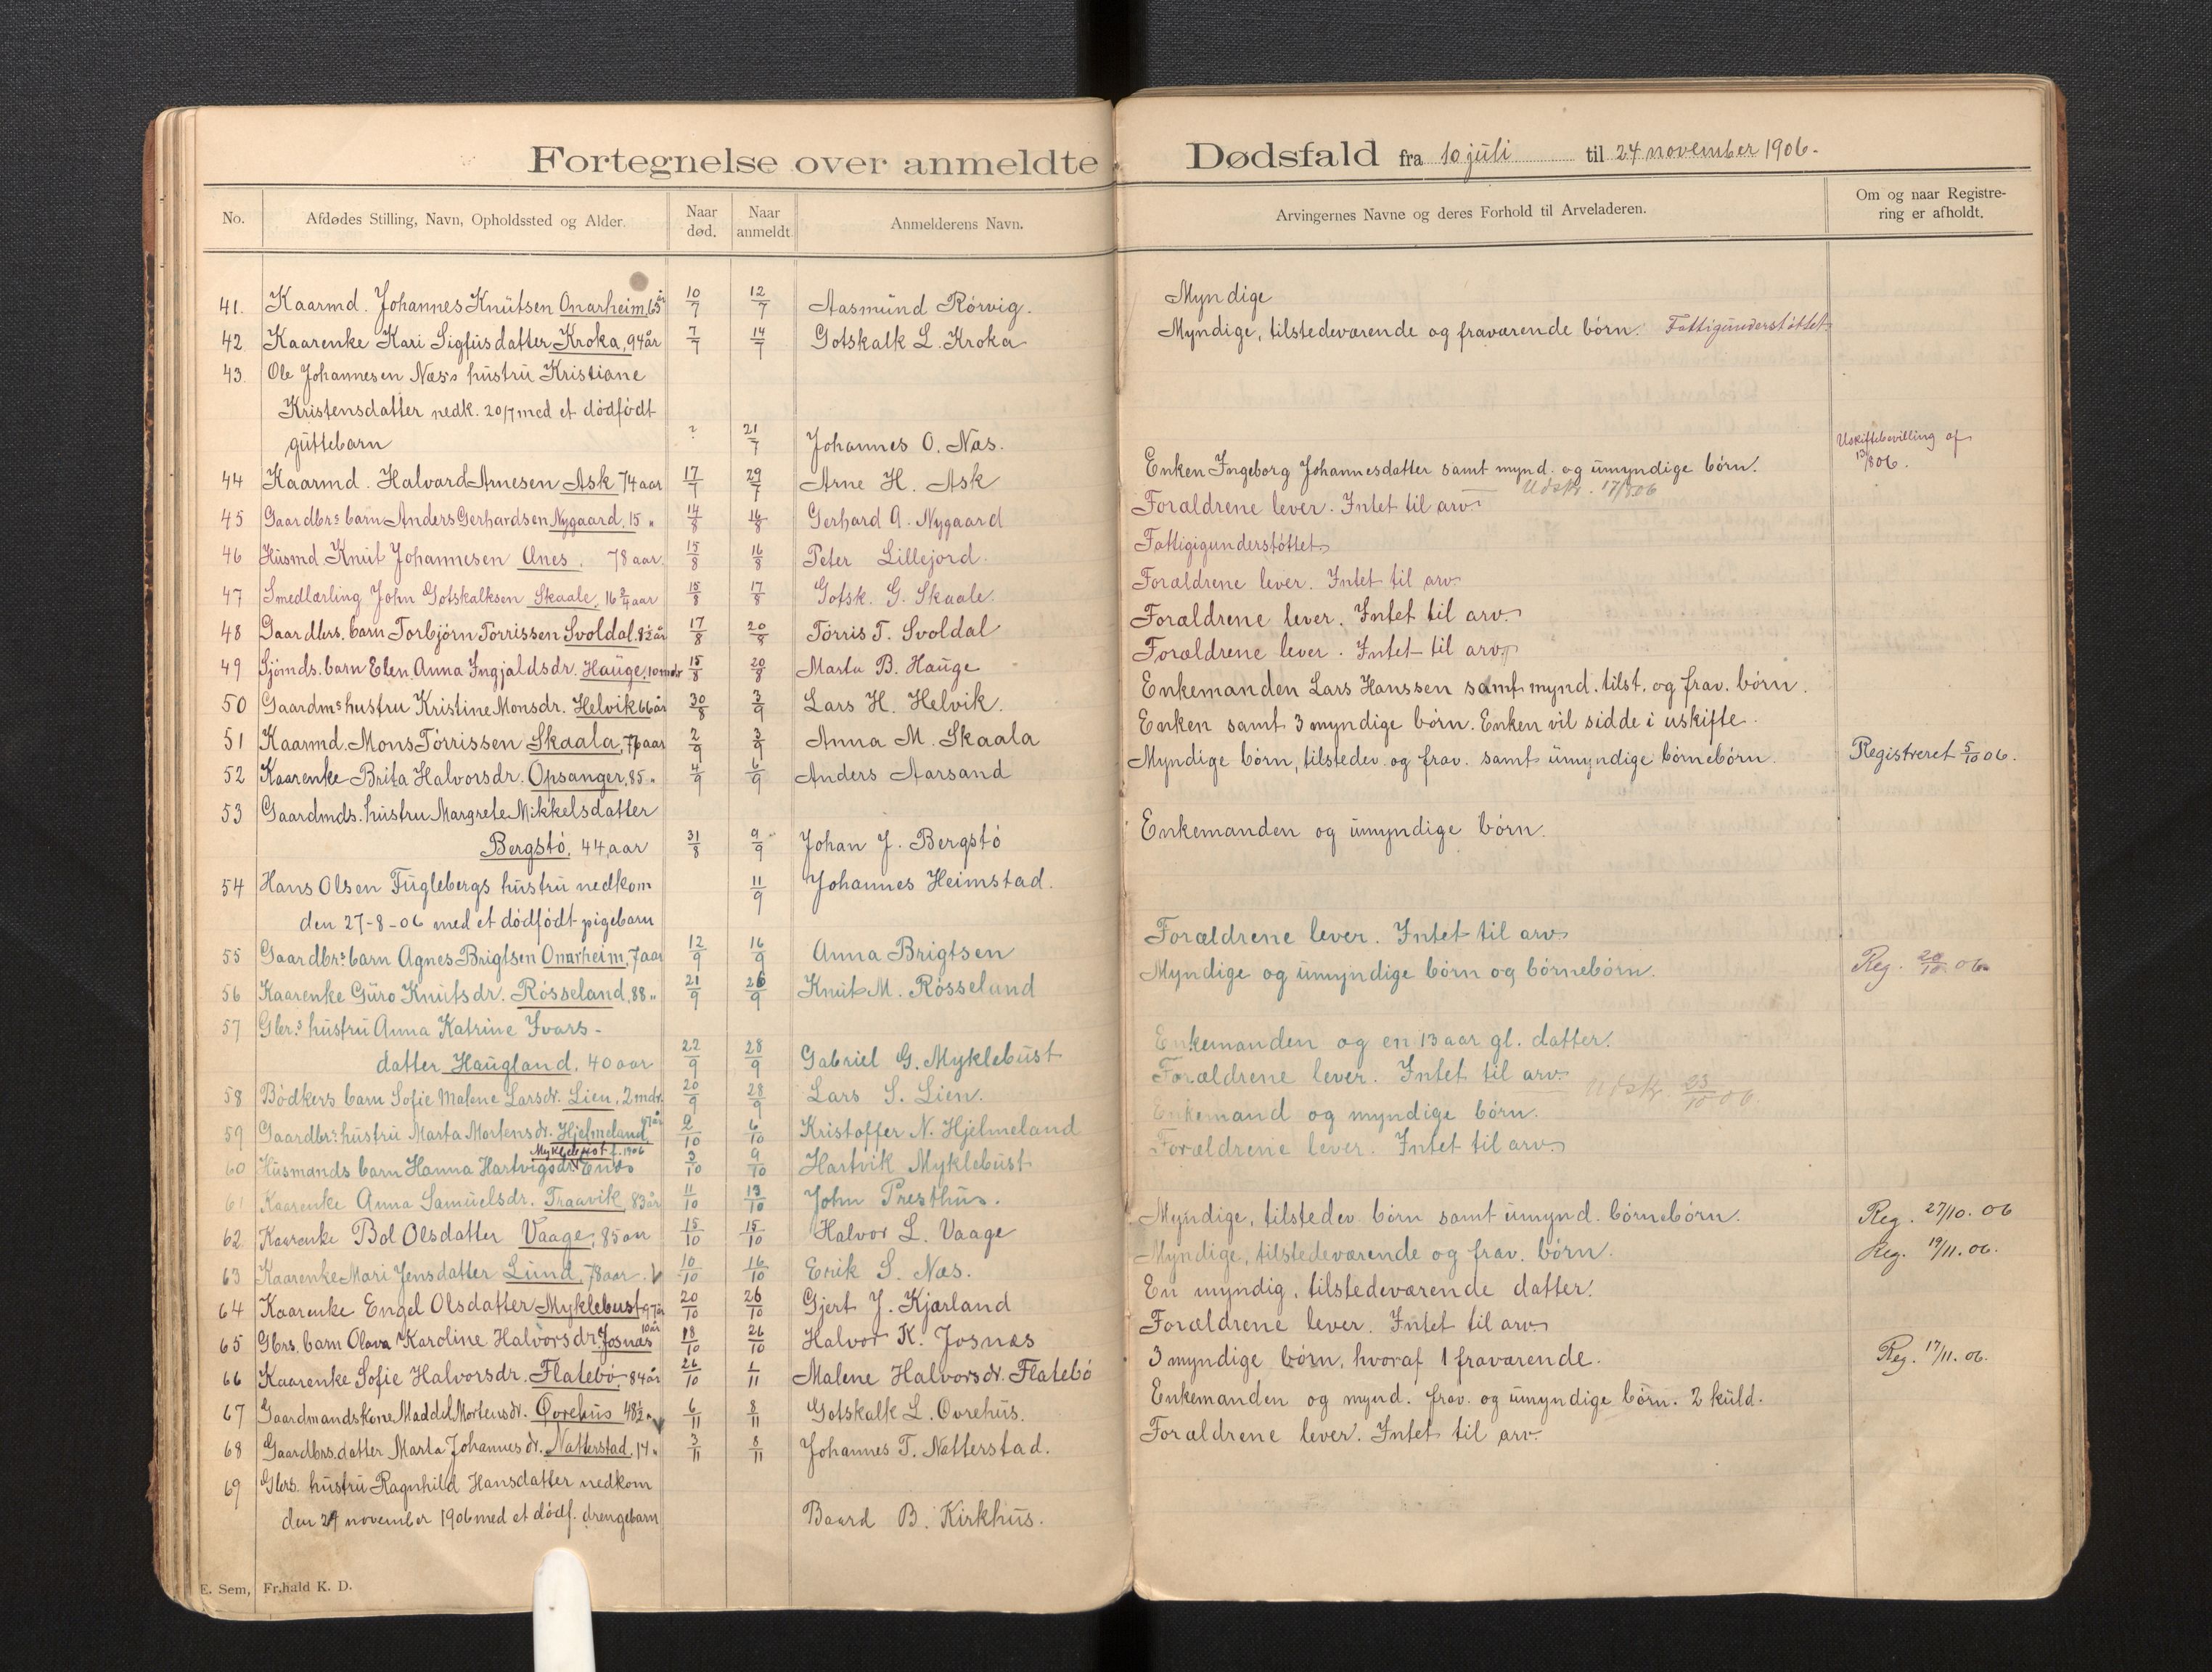 Fortegnelse over anmeldte
No.
Afdødes Stilling, Navn, Opholdssted og Alder.
Naar død.
Naar anmeldt.
Anmelderens Navn.
41. Kaarmd. Johannes Knutsen Onarheim, 65 år 10/7 12/7 Aasmund Rörvig.
42 Kaarenke Kari Sigfusdatter Kroka, 94 år 7/7 14/7 Gotskalk L. Kroka
43. Ole Johannesen Næss hustru Kristiane
Kristensdatter nedk. 20/7 med et dödfödt
guttebarn ? 21/7 Johannes O. Næs.
44 Kaarmd. Halvard Arnesen Ask 74 aar 17/7 29/7 Arne H. Ask
45 Gaardbrs barn Anders Gerhardsen Nygaard, 15 " 14/8 16/8 Gerhard A. Nygaard
46 Husmd. Knut Johannesen Ænes, 78 aar. 15/8 16/8 Peter Lillejord.
47 Smedlærling John Gotskalksen Skaale, 16 3/4 aar 15/8 17/8 Gotsk. G. Skaale.
48 Gaardbrs. barn Torbjörn Törrissen Svoldal, 8 1/2 år 17/8 20/8 Törris T. Svoldal
49 Sjömds. barn Elen Anna Ingjaldsdr. Hauge, 10 mdr 15/8 20/8 Marta B. Hauge
50 Gaardms hustru Kristine Monsdr. Helvik 66 år 30/8 3/9 Lars H. Helvik.
51 Kaarmd. Mons Törrissen Skaala, 76 aar 2/9 3/9 Anna M. Skaala
52 Kaarenke Brita Halvorsdr. Opsanger, 85 " 4/9 6/9 Anders Aarsand
53 Gaardmds. hustru Margrete Mikkelsdatter
Bergstö, 44 aar 31/8 9/9 Johan J. Bergstö
54 Hans Olsen Fuglebergs hustru nedkom 11/9 Johannes Heimstad.
den 27-8-06 med et dödfödt pigebarn
55 Gaardbrs barn Agnes Brigtsen Onarheim, 7 aar 12/9 16/9 Anna Brigtsen
56 Kaarenke Guro Knutsdr. Rösseland, 88 " 21/9 26/9 Knut M. Rösseland
57 Gbrs hustru Anna Katrine Ivars-
datter Haugland, 40 aar 22/9 28/9 Gabriel G. Myklebust
58 Bödkers barn Sofie Malene Larsdr. Lien, 2 mdr. 20/9 28/9 Lars S. Lien.
59 Gaardbrs hustru Marta Mortensdr. Hjelmeland 2/10 6/10 Kristoffer N. Hjelmeland
Myklebust f. 1906
60 Husmands barn Hanna Hartvigsdr. Enes 3/10 9/10 Hartvik Myklebust
61 Kaarenke Anna Samuelsdr. Traavik, 83 år 11/10 13/10 John Presthus.
62 Kaarenke Bol Olsdatter Vaage, 85 aar 15/10 15/10 Halvor L. Vaage
63 Kaarenke Mari Jensdatter Lund, 78 aar. 10/10 16/10 Erik S. Næs.
64 Kaarenke Engel Olsdatter Myklebust 97 år 20/10 26/10 Gjert J. Kjærland
65 Gbrs. barn Olava Karoline Halvorsdr. Josnæs 10 år 18/10 26/10 Halvor K. Josnæs
66 Kaarenke Sofie Halvorsdr. Flatebö, 84 år 26/10 1/11 Malene Halvorsdr. Flatebö
67 Gaardmandskone Maddel Mortensdr. Övrehus 48 1/2 " 6/11 8/11 Gotskalk L. Övrehus.
68 Gaardbrs. datter Marta Johannesdr. Natterstad, 14 " 3/11 8/11 Johannes T. Natterstad.
69 Gbrs. hustru Ragnhild Hansdatter nedkom
den 24 november 1906 med et dödf. drengebarn Baard B. Kirkhus.
E. Sem, Fr.hald K. D.
Dødsfald fra 10 juli til 24 november 1906.
Arvingernes Navne og deres Forhold til Arveladeren.
Om og naar Registre-
ring er afholdt.
Myndige
Myndige, tilstedeværende og fraværende börn. Fattigunderstöttet
Enken Ingeborg Johannesdatter samt mynd. og umyndige börn. Uskiftebevilling af 13/8 06.
Udskr. 17/8 06
Forældrene lever. Intet til arv.
Fattigigunderstöttet
Forældrene lever. Intet til arv.
Forældrene lever. Intet til arv.
Forældrene lever. Intet til arv.
Enkemanden Lars Hanssen samt mynd. tilst. og frav. börn.
Enken samt 3 myndige börn. Enken vil sidde i uskifte.
Myndige börn, tilstedev. og frav. samt umyndige börnebörn. Registreret 5/10 06.
Enkemanden og umyndige börn.
Forældrene lever. Intet til arv.
Myndige og umyndige börn og börnebörn. Reg. 20/10 06.
Enkemanden og en 13 aar gl. datter.
Forældrene lever. Intet til arv.
Udskr. 23/10 06.
Enkemand og myndige börn.
Forældrene lever. Intet til arv.
Myndige, tilstedev börn samt umynd. börnebörn. Reg. 27/10. 06
Myndige, tilstedeværende og frav. börn. Reg. 19/11. 06.
En myndig, tilstedeværende datter.
Forældrene lever. Intet til arv.
3 myndige börn, hvoraf 1 fraværende. Reg. 17/11. 06.
Enkemanden og mynd. frav. og umyndige börn. 2 kuld.
Forældrene lever. Intet til arv.